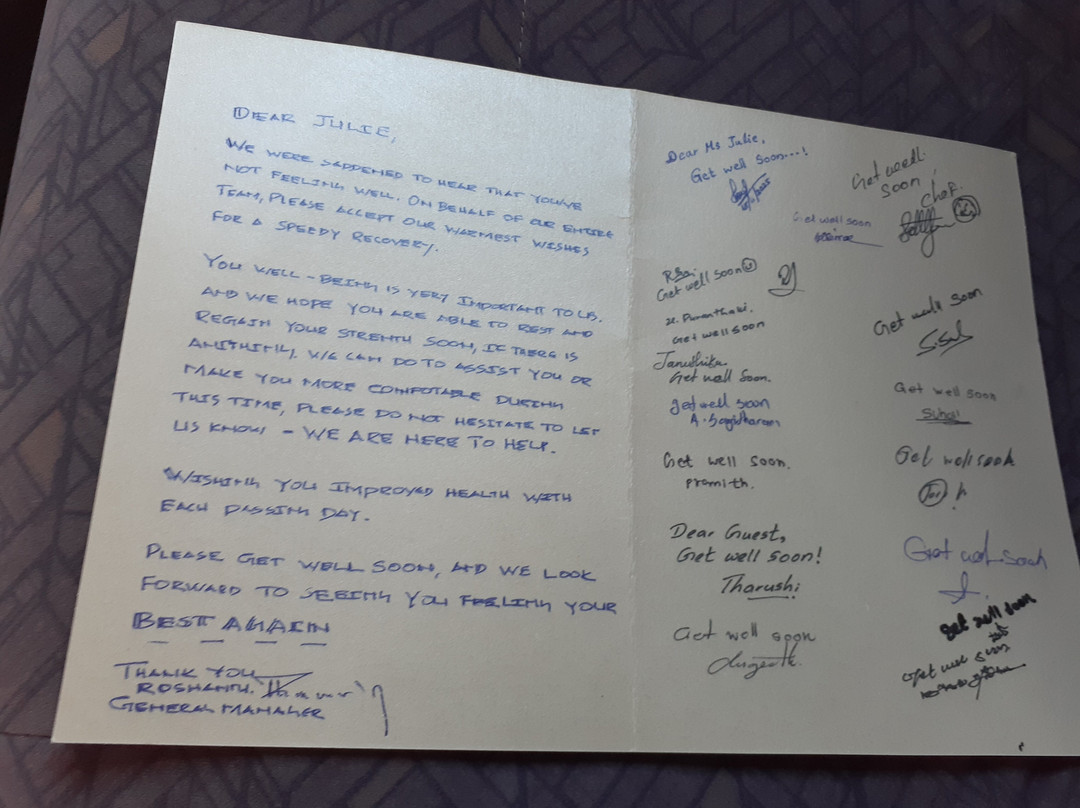 DEAR JULIE,
WE WERE SADDENED TO HEAR THAT YOU'VE
NOT FEELING WELL. ON BEHALF OF OUR ENTIRE
TEAM, PLEASE ACCEPT OUR WARMEST WISHES
FOR A SPEEDY RECOVERY.
YOU WELL - BEING IS VERY IMPORTANT TO US.
AND WE HOPE YOU ARE ABLE TO REST AND
REGAIN YOUR STRENTH SOON, IF THERE IS
ANITHING, WE CAN DO TO ASSIST YOU OR
MAKE YOU MORE COMFOTABLE DURING
THIS TIME, PLEASE DO NOT HESITATE TO LET
US KNOW - WE ARE HERE TO HELP.
WISHING YOU IMPROVED HEALTH WITH
EACH PASSING DAY.
PLEASE GET WELL SOON, AND WE LOOK
FORWARD TO SEEING YOU FEELING YOUR
BEST AGAIN
THANK YOU
ROSHANTH.
GENERAL MANAGER
Dear Ms Julie,
Get well soon...!
Get well soon
Get well soon
Get well soon
Get well soon
Get well soon.
get well soon
Get well soon.
Pramith.
Dear Guest,
Get well soon!
Tharushi
Get well soon
Get well
soon
chef.
Get well soon
Get well soon
Get well soon
Get well soon
Get well soon
Get well soon